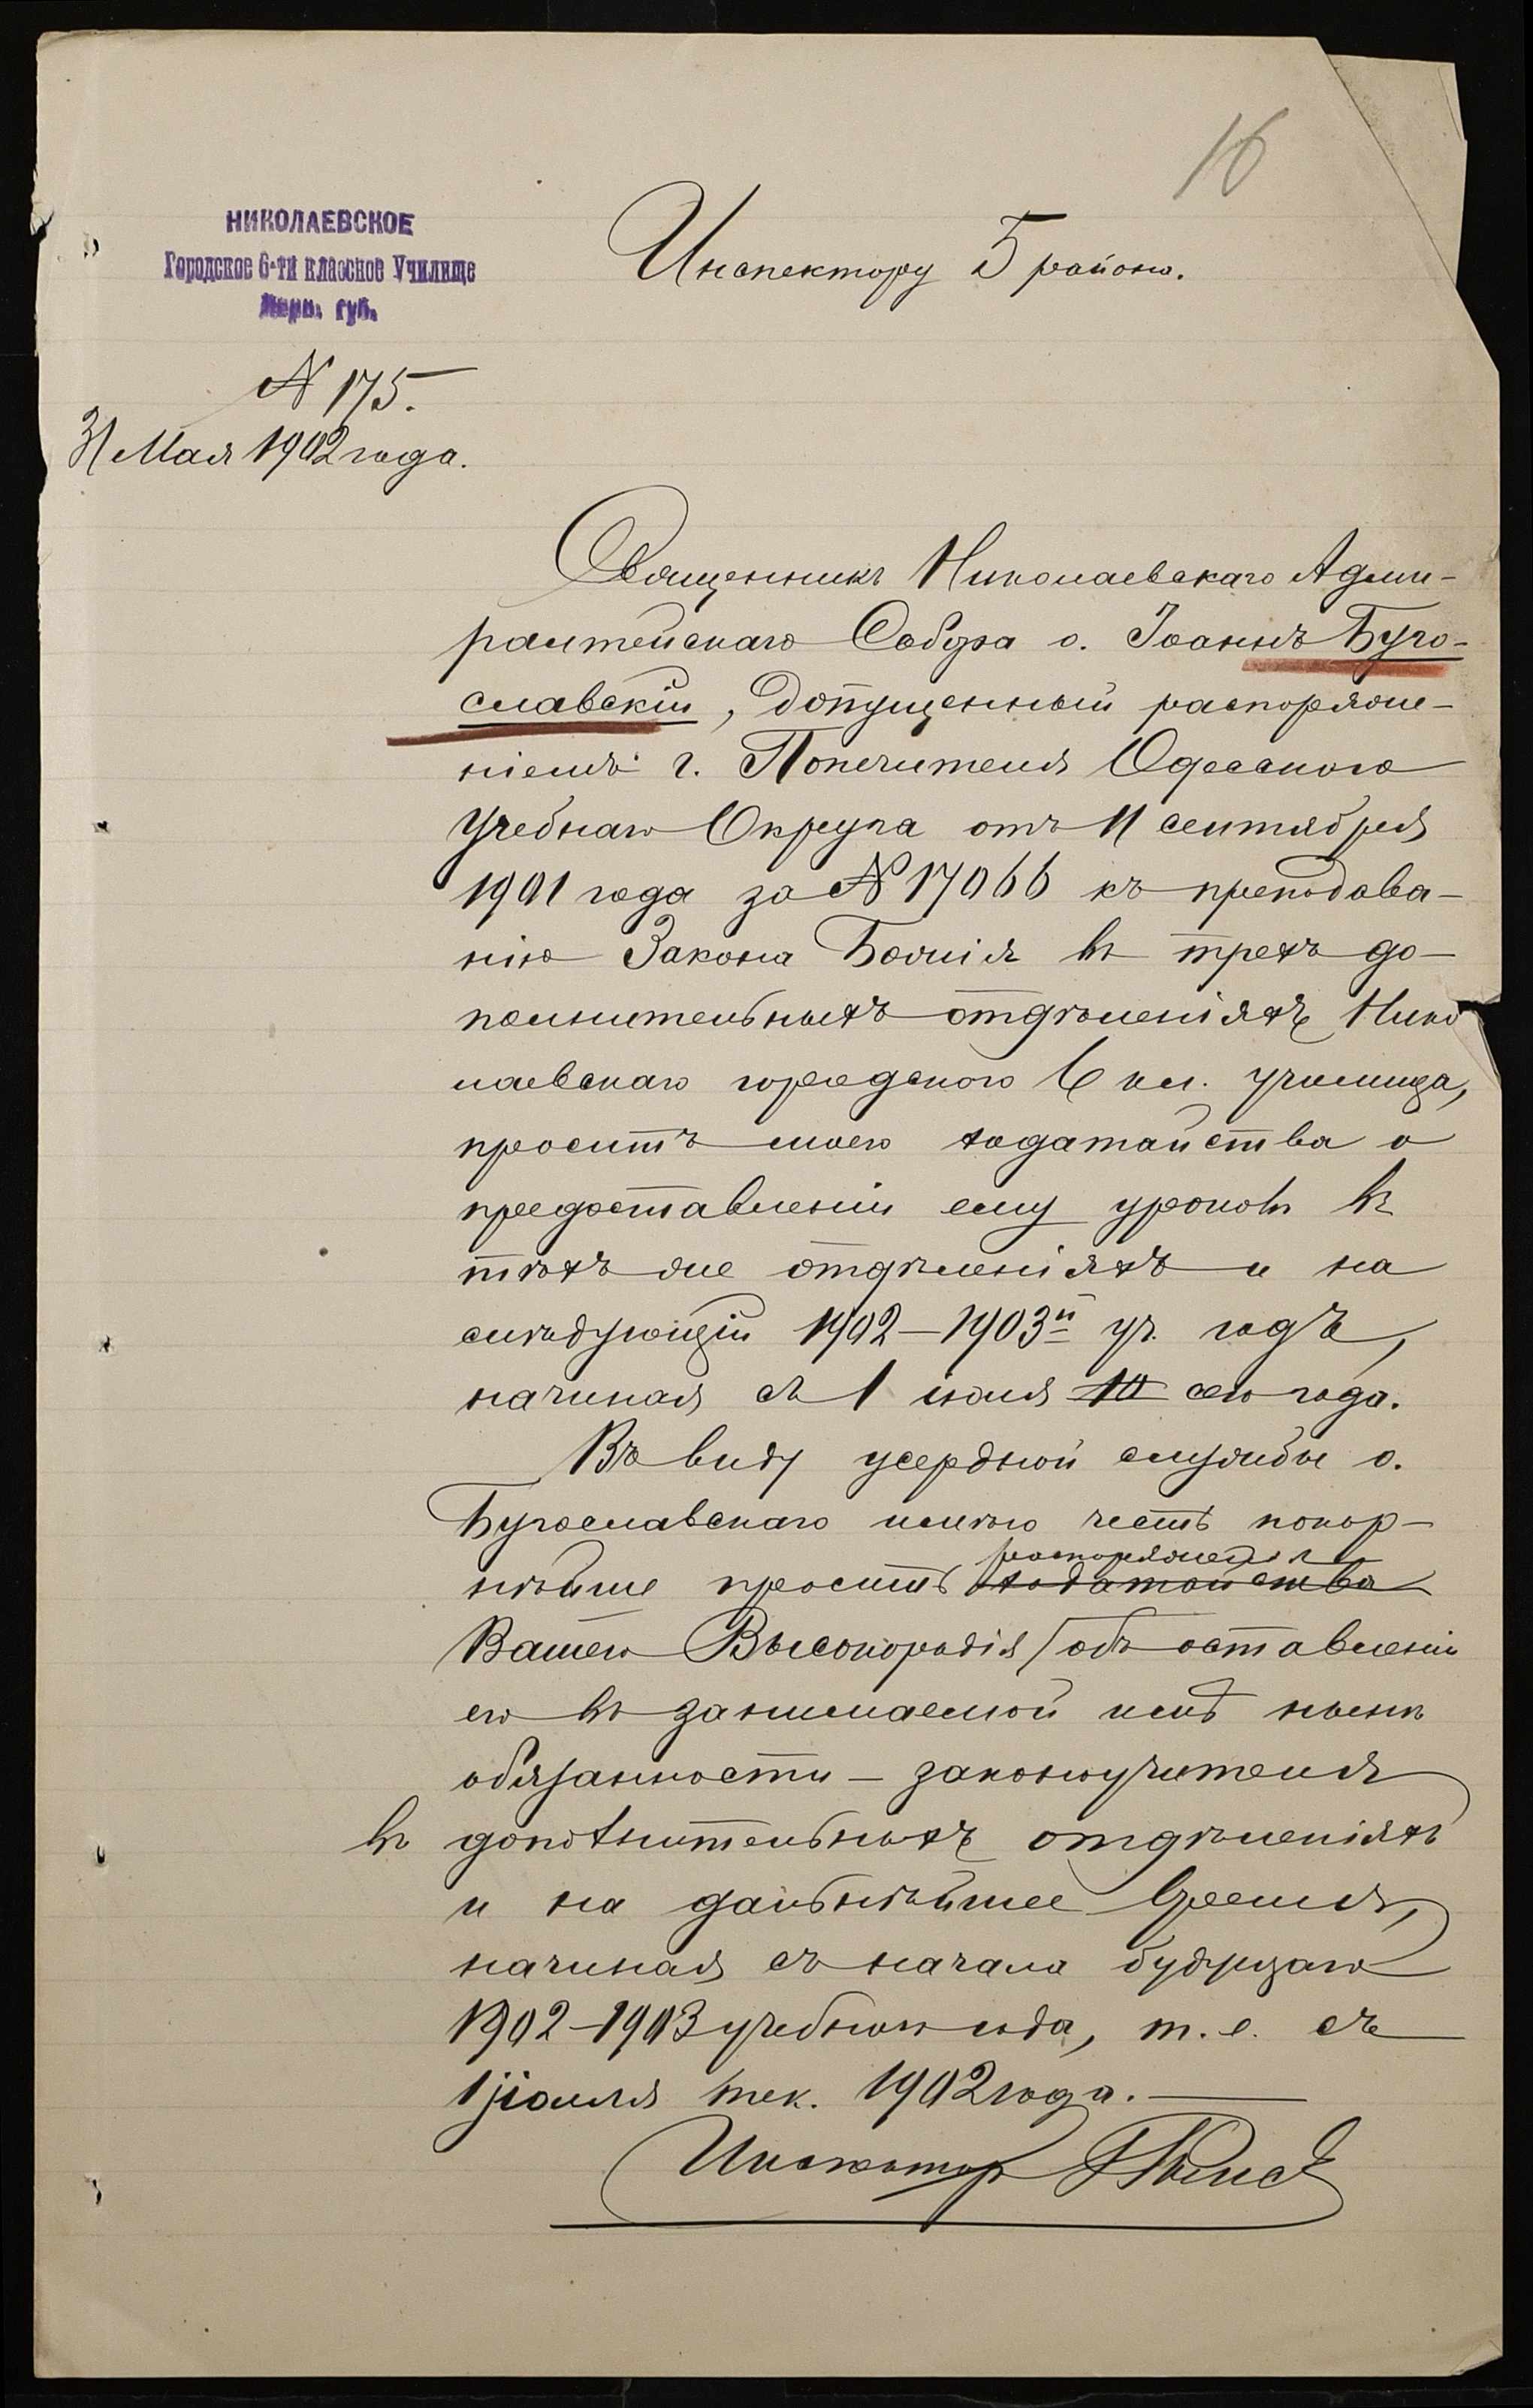 16
НИКОЛАЕВСКОЕ
Городское 6-ти классное Училище
губ.
Инспектору 5 района.
N 175.
31 Мая 1902 года.
Священникъ Николаевскаго Адми-
ралтейскаго Собора о. Іоаннъ Буго-
славскій, допущенный распоряже-
ніемъ г. Попечителя Одесскаго
Учебнаго Округа отъ 11 сентября
1901 года за N 17066 къ преподава-
нію Закона Божія въ трехъ до-
полнительныхъ отдѣленіяхъ Нико
лаевскаго городского 6 кл. училища,
проситъ моего ходатайства о
предоставленіи ему уроковъ въ
тѣхъ же отдѣленіяхъ и на
слѣдующій 1902-1903й уч. годъ,
начиная съ 1 іюля 10 сего года.
Въ виду усердной службы о.
Бугославскаго имѣю честь покор-
распоряженія
нѣйше просить ходатайства
Вашего Высокородія объ оставленіи
его въ занимаемой имъ нынѣ
обязанности - законоучителя
въ дополнительныхъ отдѣленіяхъ
и на дальнѣйшее время,
начиная съ начала будущаго
1902-1903 учебнаго года, т.е. съ
1 іюля тек. 1902 года.
Инспекторъ